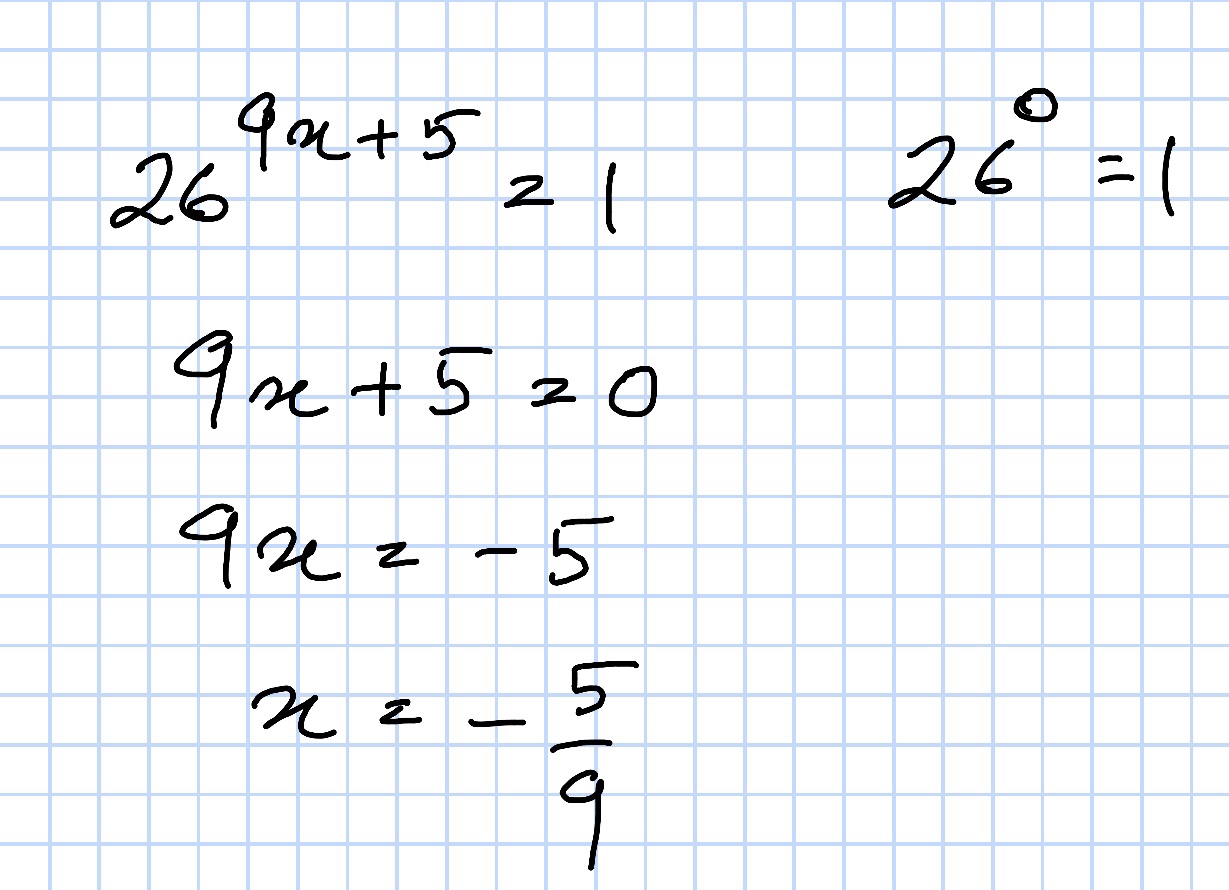 26^{9x+5} = 1
26^0 = 1
9x + 5 = 0
9x = -5
x = -5/9